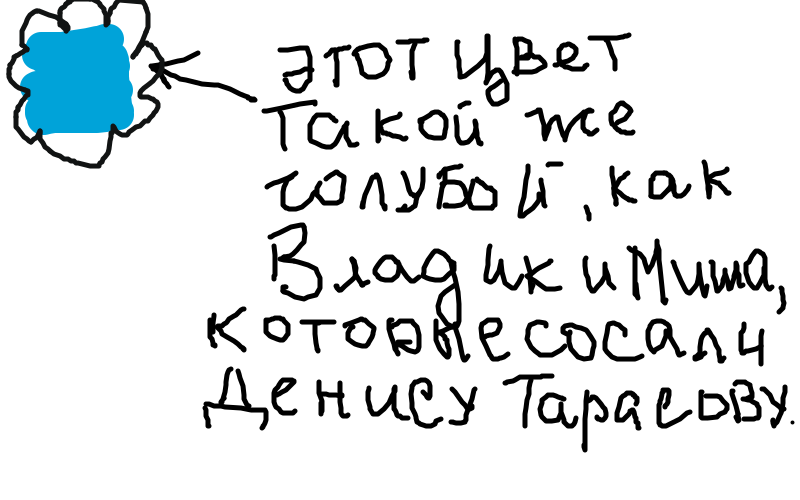 этот цвет
такой же
голубой, как
Владик и Миша,
которые сосали
Денису Тарасову.